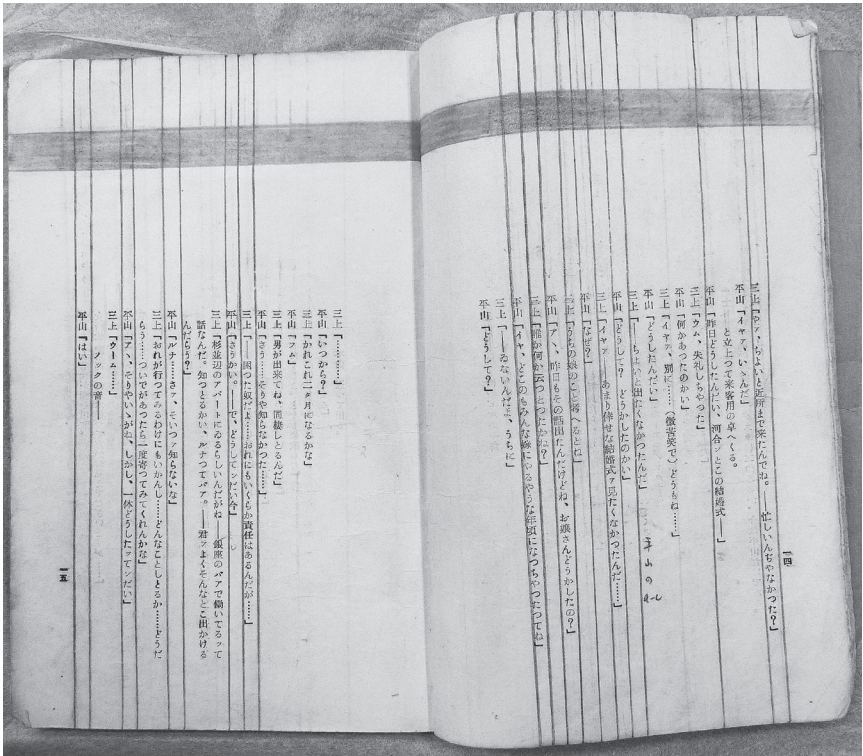 三上「やア、ちよいと近所まで来たんでね。――忙しいんぢやなかつた?」
平山「イヤア、いゝんだ」
と立上つて来客用の卓へくる。
平山「昨日どうしたんだい、河合ンとこの結婚式――」
三上「ウム、失礼しちやつた」
平山「何かあつたのかい」
三上「イヤア、別に……(微苦笑で)どうもね……」
平山「どうしたんだい」
三上「――ちよいと出たくなかつたんだ」
平山の
平山「どうして? どうかしたのかい」
三上「イヤア――あまり倖せな結婚式ァ見たくなかつたんだ……」
平山「なぜ?」
三上「うちの娘のこと考へるとね」
平山「アヽ、昨日もその話出たんだけどね、お嬢さんどうかしたの?」
三上「誰か何か云つとつたかね?」
平山「イヤ、どこのもみんな嫁にやるやうな年頃になつちやつたつてね」
三上「――ゐないんだよ、うちに」
平山「どうして?」
一四
三上「…………」
平山「いつから?」
三上「かれこれ二ヶ月になるかな」
平山「フム」
三上「男が出来てね、同棲しとるんだ」
平山「さう……そりや知らなかつた……」
三上「――困つた奴だよ……おれにもいくらか責任はあるんだが……」
平山「さうかい。――で、どうしてンだい今」
三上「杉並辺のアパートにゐるらしいんだがね――銀座のバアで働いてるッて
話なんだ。知つとるかい、ルナつてバア。――君ァよくそんなとこ出かける
んだらう?」
平山「ルナ……さァ、そいつァ知らないな」
三上「おれが行つてみるわけにもいかんし……どんなことしとるか……どうだ
らう……ついでがあつたら一度寄つてみてくれんかな」
平山「アヽ、そりやいゝがね、しかし、一体どうしたッてンだい」
三上「ウーム……」
ノックの音――
平山「はい」
一五